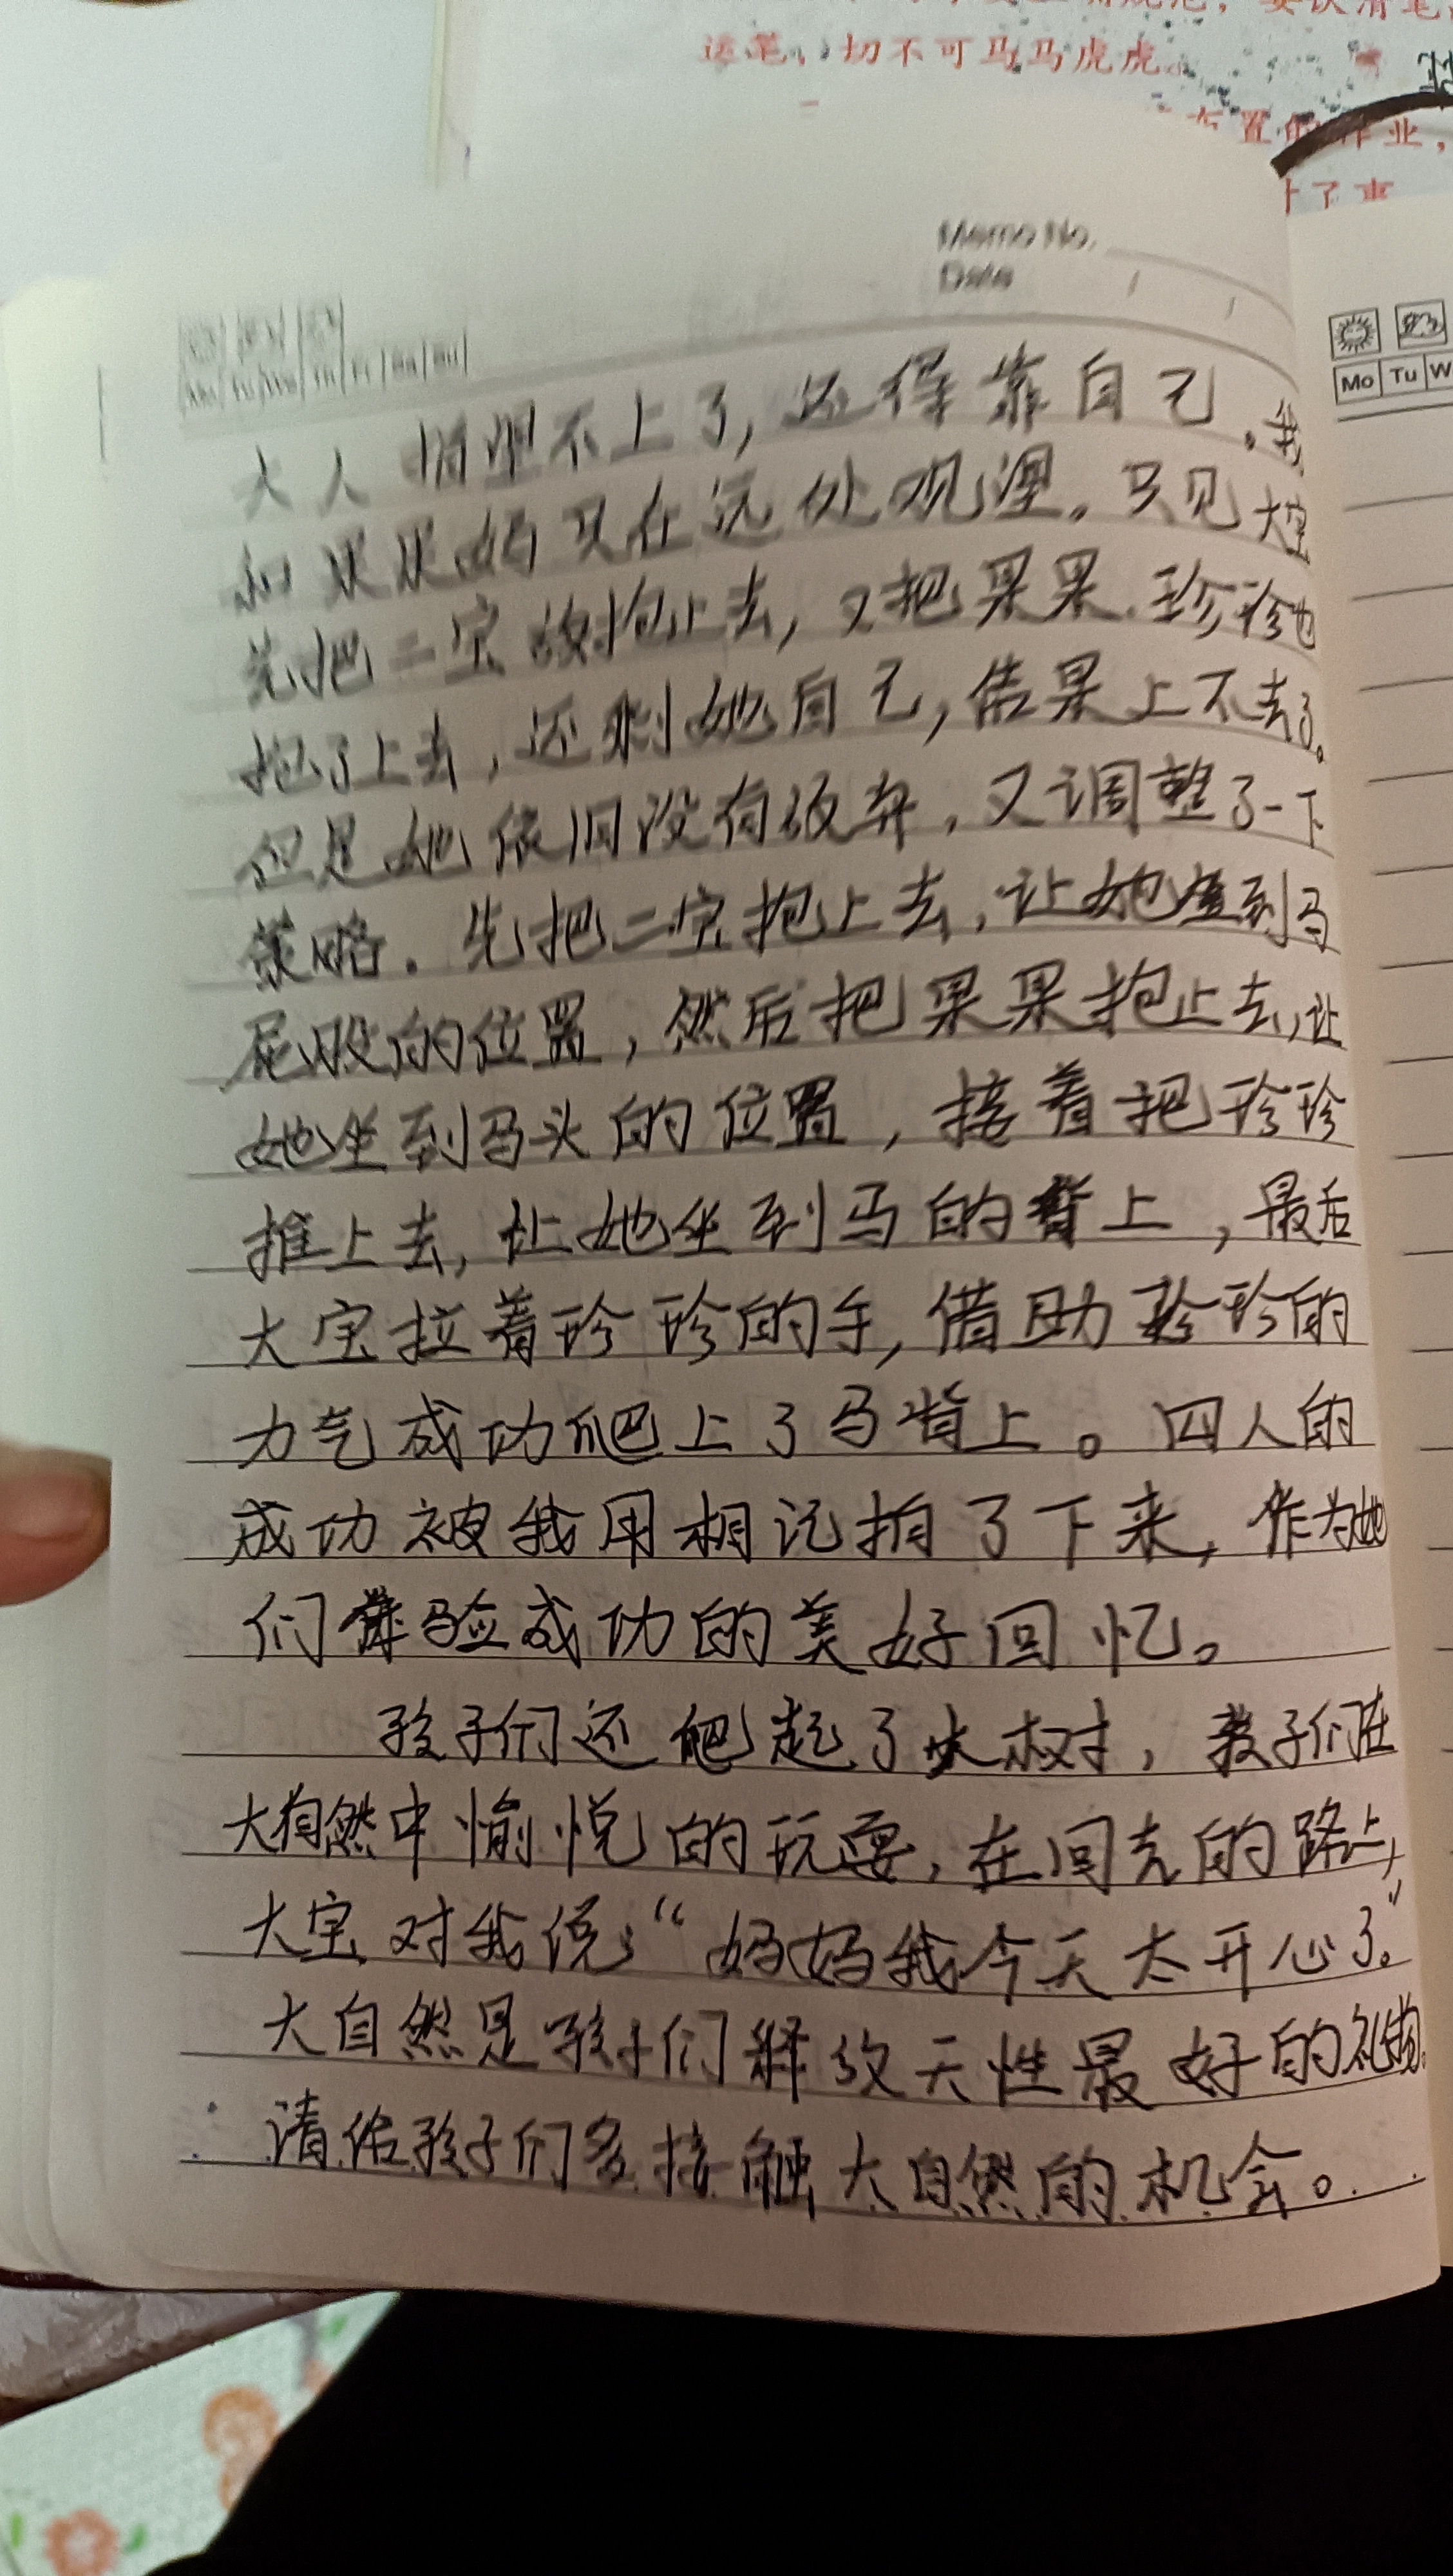 运笔，切不可马马虎虎。
布置的作业，
Memo No.
Date / /
Mo Tu W
大人指望不上了，还得靠自己。我
和果果妈只在远处观望。只见大宝
先把二宝抱上去，又把果果、珍珍也
抱了上去，还剩她自己，结果上不去了。
但是她依旧没有放弃，又调整了一下
策略。先把二宝抱上去，让她坐到马
屁股的位置，然后把果果抱上去，让
她坐到马头的位置，接着把珍珍
推上去，让她坐到马的背上，最后
大宝拉着珍珍的手，借助珍珍的
力气成功爬上了马背上。四人的
成功被我用相记拍了下来，作为她
们体验成功的美好回忆。
孩子们还爬起了大树，孩子们在
大自然中愉悦的玩耍，在回去的路上，
大宝对我说，“妈妈我今天太开心了。”
大自然是孩子们释放天性最好的礼物。
请给孩子们多接触大自然的机会。